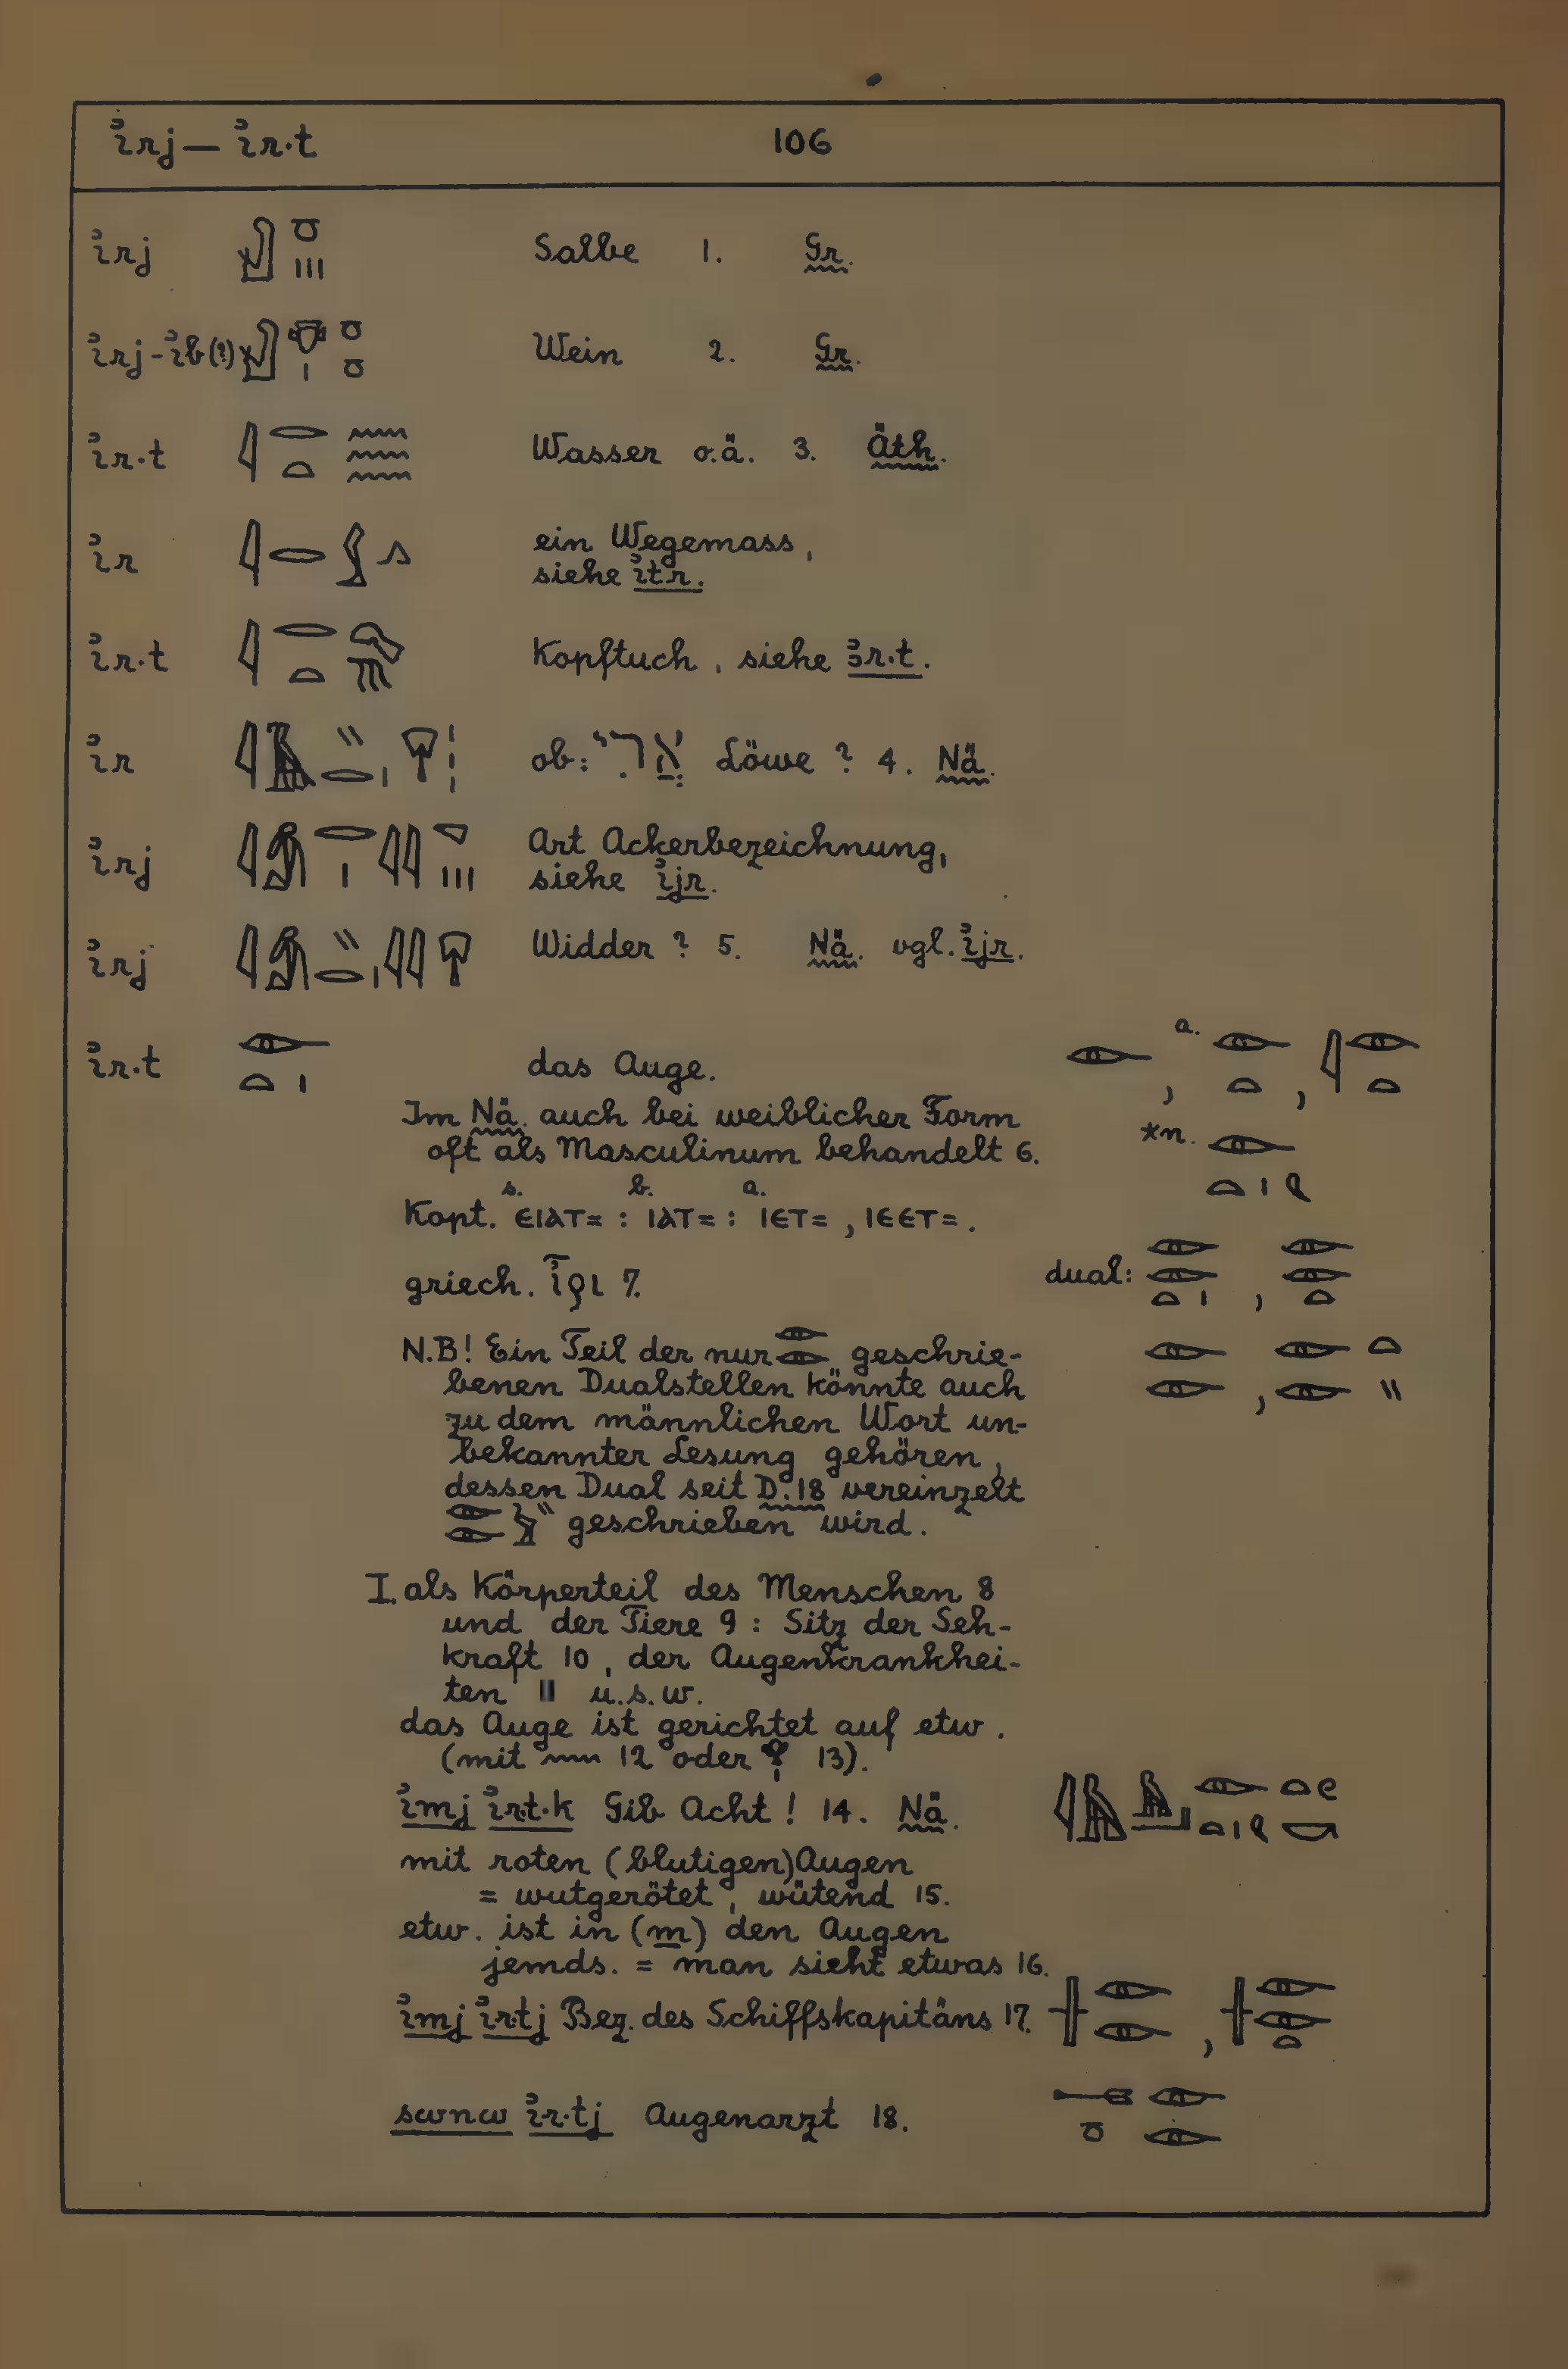 ỉrj — ỉr·t 106
ỉrj Salbe 1. Gr.
ỉrj-ỉb(?) Wein 2. Gr.
ỉr·t Wasser o.ä. 3. Äth.
ỉr ein Wegemass,
siehe ỉtr.
ỉr·t Kopftuch, siehe ꜣr·t.
ỉr ob: Löwe? 4. Nä.
ỉrj Art Ackerbezeichnung,
siehe ỉjr.
ỉrj Widder? 5. Nä. vgl. ỉjr.
ỉr·t das Auge. a.
Im Nä. auch bei weiblicher Form
oft als Masculinum behandelt 6. *n.
s. b. a.
Kopt. ⲉⲓⲁⲧ= : ⲓⲁⲧ= : ⲓⲉⲧ= , ⲓⲉⲉⲧ= .
griech. ἶρι 7. dual:
N.B! Ein Teil der nur 𓁹𓁹 geschrie-
benen Dualstellen könnte auch
zu dem männlichen Wort un-
bekannter Lesung gehören,
dessen Dual seit D.18 vereinzelt
geschrieben wird.
I. als Körperteil des Menschen 8
und der Tiere 9 : Sitz der Seh-
kraft 10, der Augenkrankhei-
ten 11 u.s.w.
das Auge ist gerichtet auf etw.
(mit 𓈖 12 oder 𓁷 13).
ỉmj ỉr·t·k Gib Acht! 14. Nä.
mit roten (blutigen) Augen
= wutgerötet, wütend 15.
etw. ist in (m) den Augen
jemds. = man sieht etwas 16.
ỉmj ỉrtj Bez. des Schiffskapitäns 17.
swnw ỉr·tj Augenarzt 18.